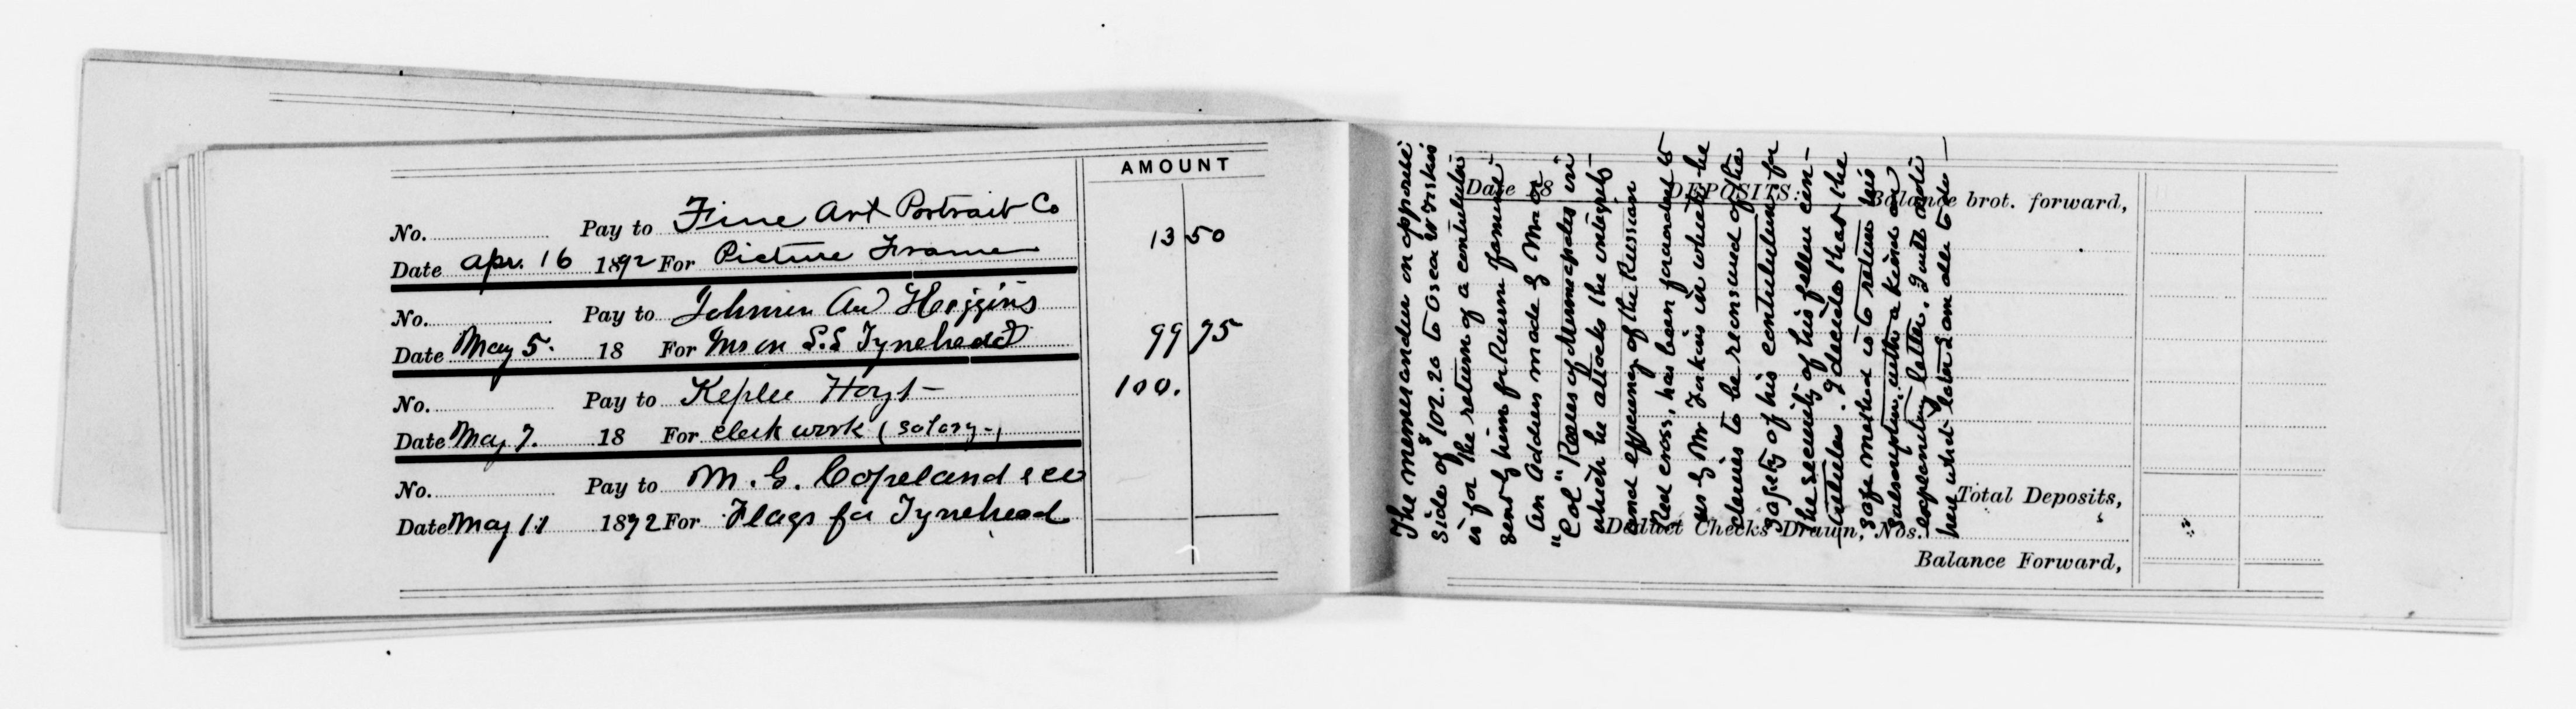 AMOUNT
No. Pay to Fine Art Portrait Co
Date Apr. 16 1892 For Picture Frame 13 50
No. Pay to Johnson and Higgins
Date May 5. 18 For Ins on S.S Tynehead 99 75
No. Pay to Hoyt 100.
Date May 7. 18 For clerk work (salary-)
No. Pay to M. G. Copeland & co
Date May 11 1892 For Flags for Tynehead
The memorandum on opposite
side of $102.20 to Oscar
is for the return of a contribution
sent by him for Russian famine
An Address made by Mr or
"Col" of Minneapolis in
which he attacks the integrity
and efficiency of the Russian
Red cross, has been forwarded to
us by Mr in which he
desires to be reassured of the
safety of his contribution, for
the security of his fellow con-
tributors. I decide that the
safe method is to return his
subscription, with a kind and
explanatory letter. I
here what
Date 18 DEPOSITS:
Balance brot. forward,
Total Deposits,
Deduct Checks Drawn, Nos.
Balance Forward,